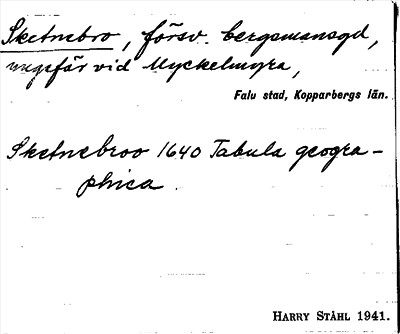 Sketnebro, försv. bergsmansgd,
ungefär vid Myckelmyra,
Falu stad, Kopparbergs län.
Sketnebroo 1640 Tabula geogra-
phica.
HARRY STÅHL 1941.